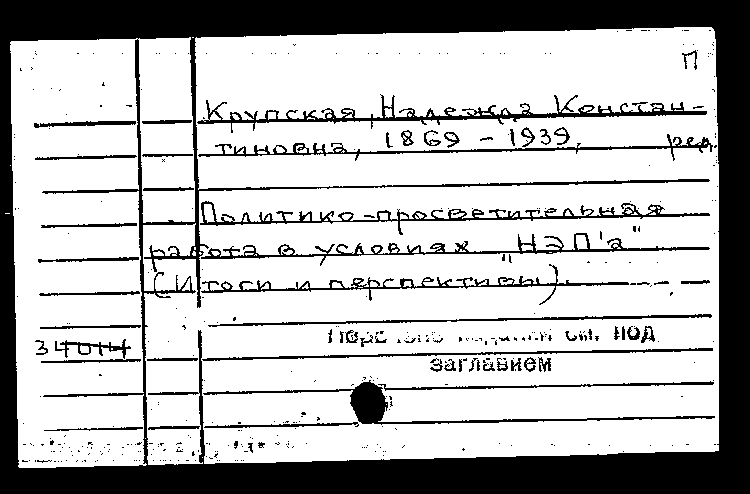 П
Крупская, Надежда Констан-
тиновна, 1869 - 1939, ред.
Политико-просветительная
работа в условиях „НЭП'а"
(Итоги и перспективы).
см. под
34014
заглавием